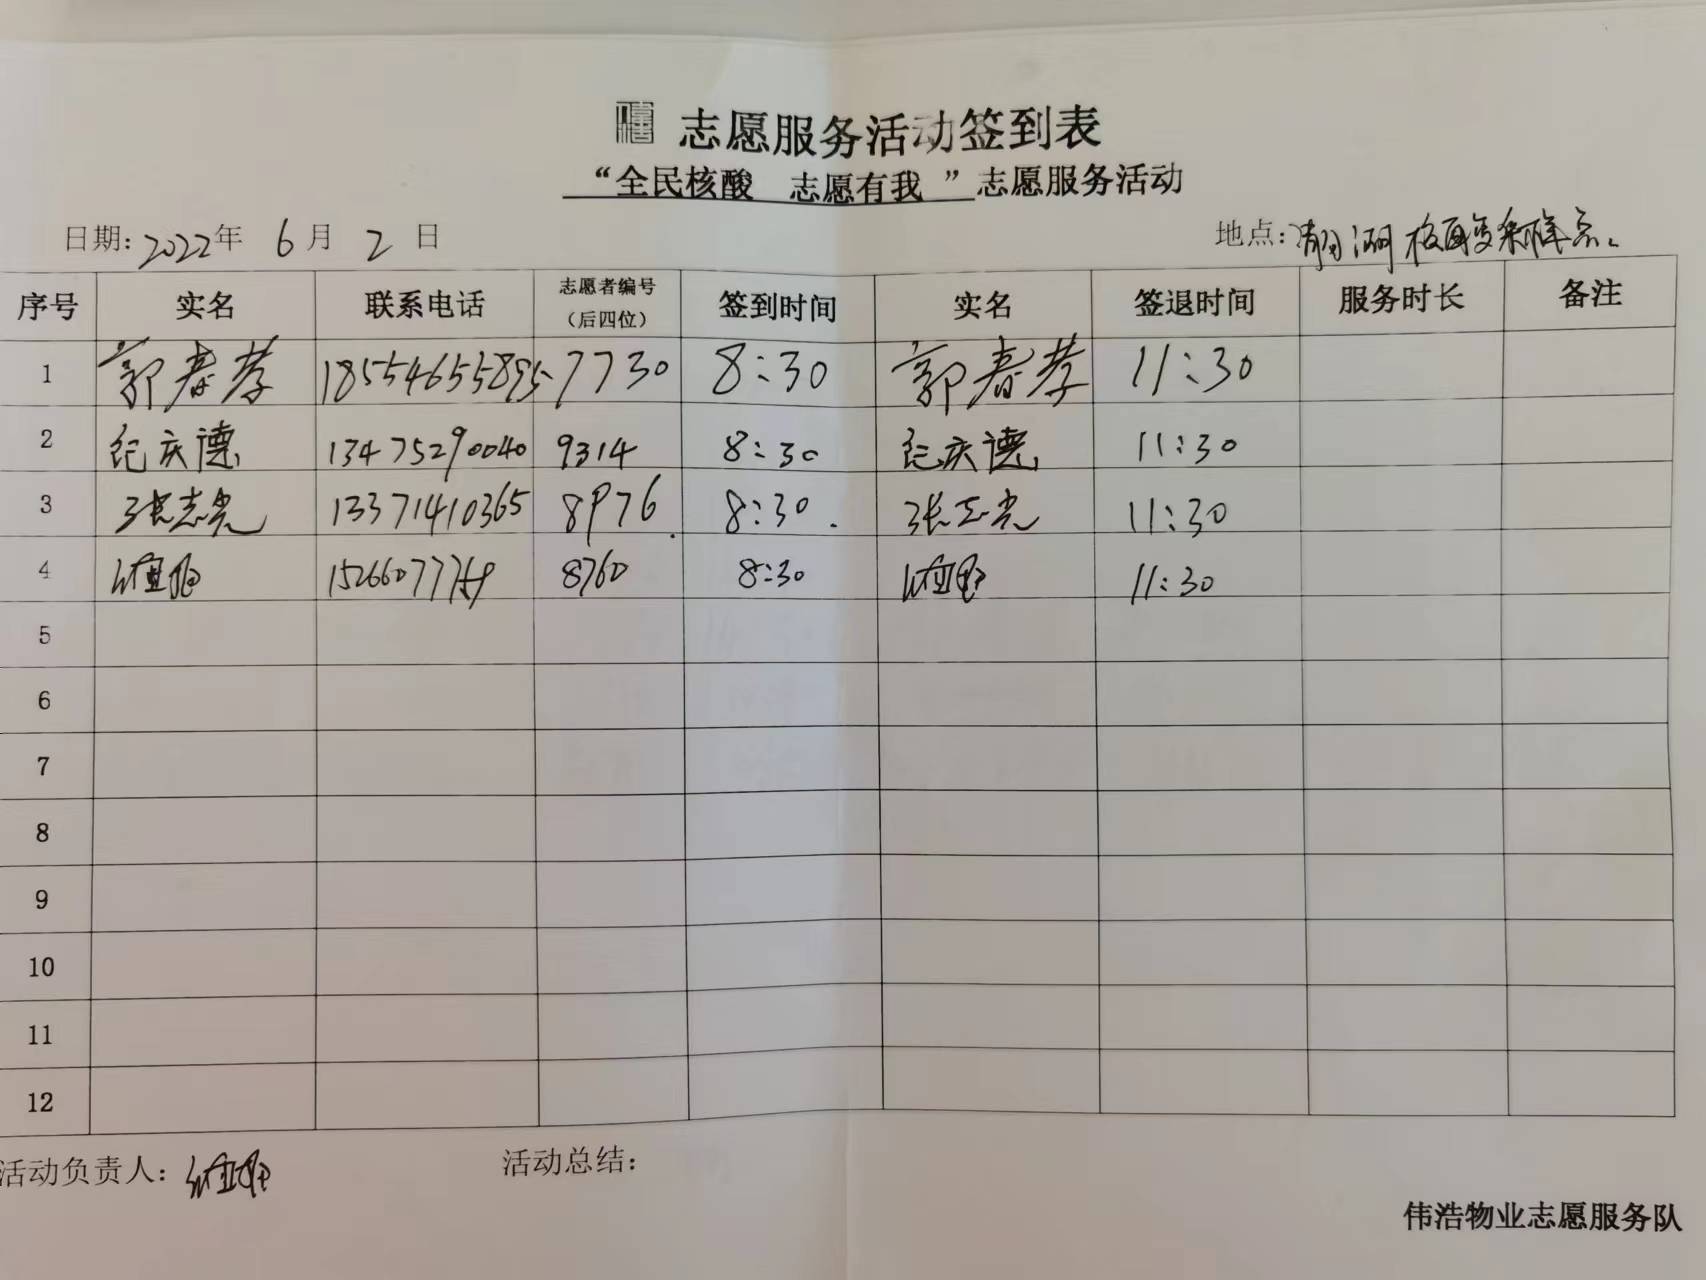 志愿服务活动签到表
“全民核酸 志愿有我”志愿服务活动
日期:2022年 6月 2日 地点:湖核酸采样点。
序号 实名 联系电话 志愿者编号(后四位) 签到时间 实名 签退时间 服务时长 备注
1 郭春孝 18554655895 7730 8:30 郭春孝 11:30
2 纪庆德 13475290040 9314 8:30 纪庆德 11:30
3 张志光 13371410365 8976 8:30 张志光 11:30
4 8760 8:30 11:30
5
6
7
8
9
10
11
12
活动负责人: 活动总结:
伟浩物业志愿服务队